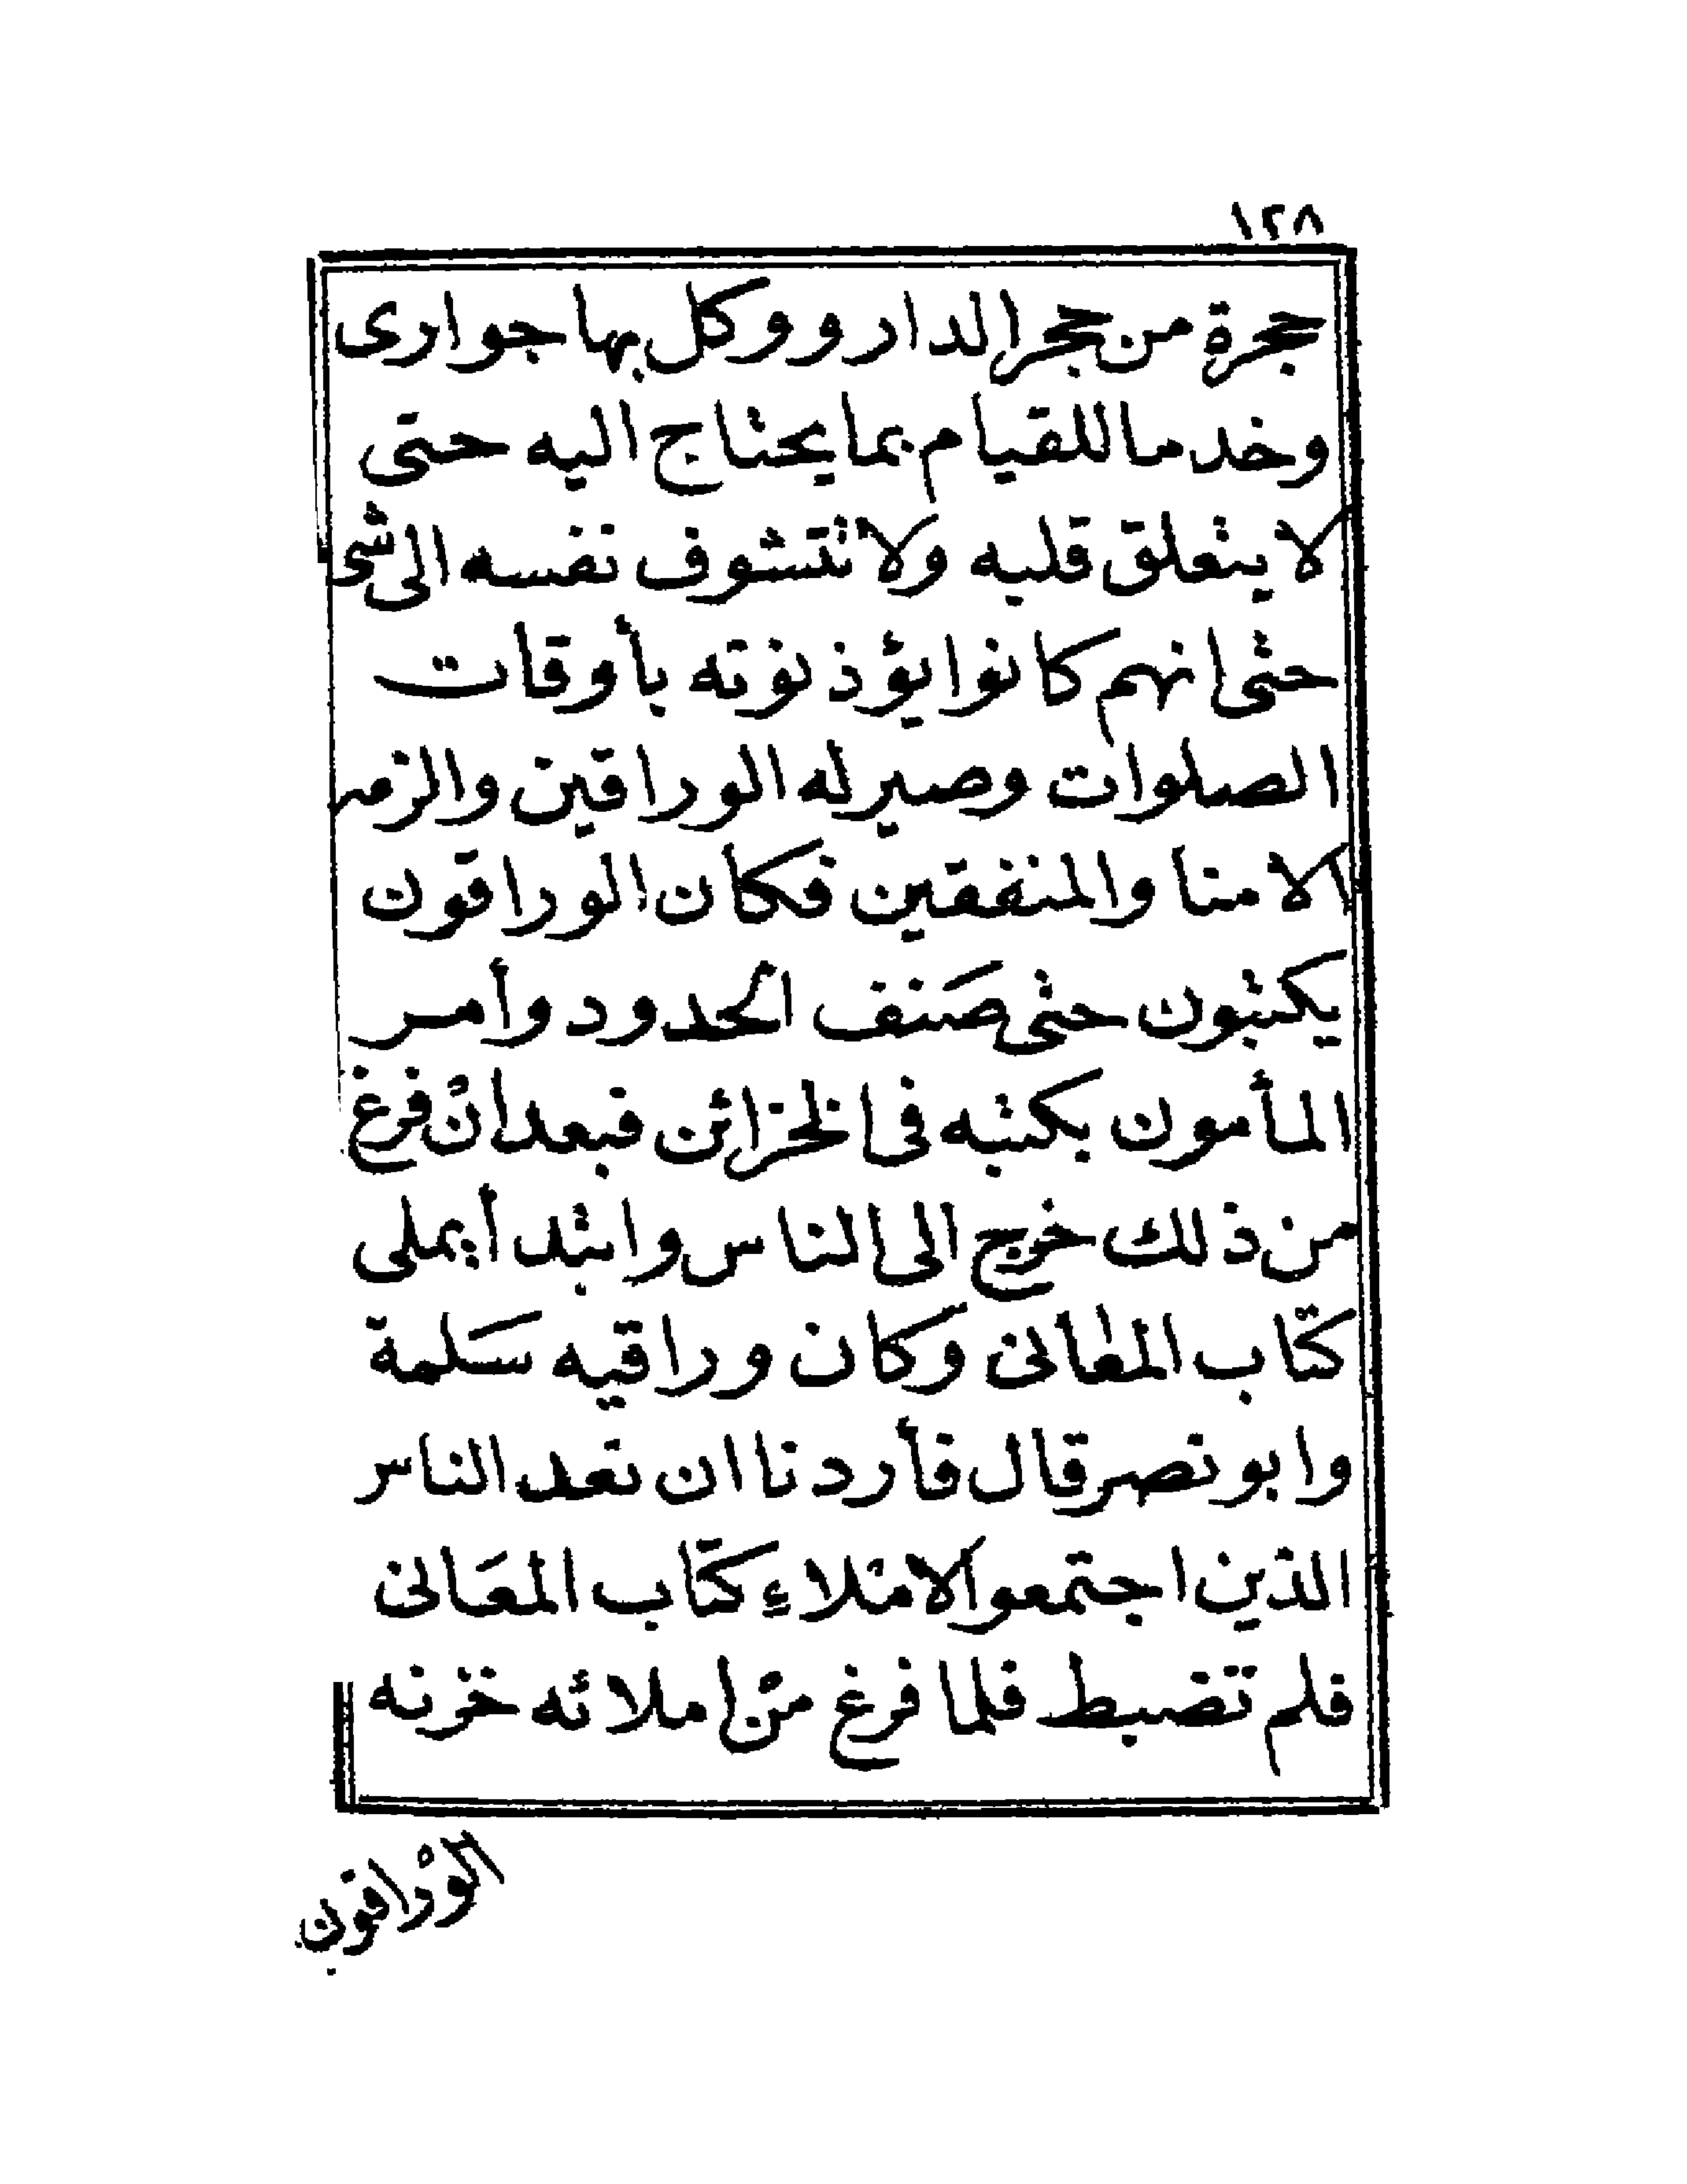 ١٢٨
حجرة من حجر الدار ووكل بها جوارى
وخدما للقيام بما يحتاج اليه حتى
لا يتعلق قلبه ولا تتشوف نفسه الى شى
حتى انهم كانوا يؤذنونه بأوقات
الصلوات وصير له الوراقين والزمه
الامنا والمنفقين فكان الوراقون
يكتبون حتى صَنف الحدود وأمر
المأمون بكتبه فى الخزائن فبعد ان فرغ
من ذلك خرج الى الناس وابتدأ يملى
كتاب المعانى وكان وراقيه سَلمة
وابو نصر قال فأردنا ان نعد الناس
الذين اجتمعوا لاملاءِ كتاب المعَانى
فلم تضبط فلما فرغ من املائه خزنه
الورّاقون